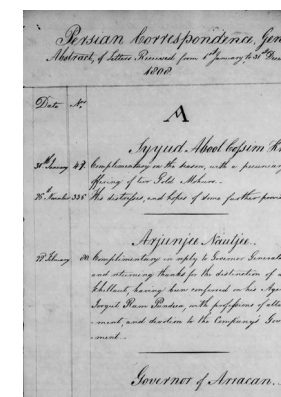 Persian Correspondence, Gen
Abstract, of Letters Received from 1st January to 31st Dec
1808
Date No.
A
Syyud Abool Cossim K
31st January 47. Complimentary on the season, with a pecuniary
offering of two Gold Mohurs.
26th November 335 His distresses, and hopes of some further provi
Arjunjee Nautjee.
22d February 80. Complimentary in reply to Governor General
and returning thanks for the distinction of a
Khillaut, having been conferred on his Agent
Ram with professions of atta
-ment, and devotion to the Company's Gov
-ment.
Governor of Arracan.